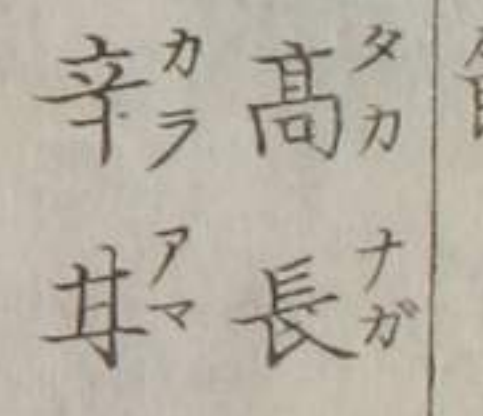 髙タカ 長ナガ
辛カラ 甘アマ